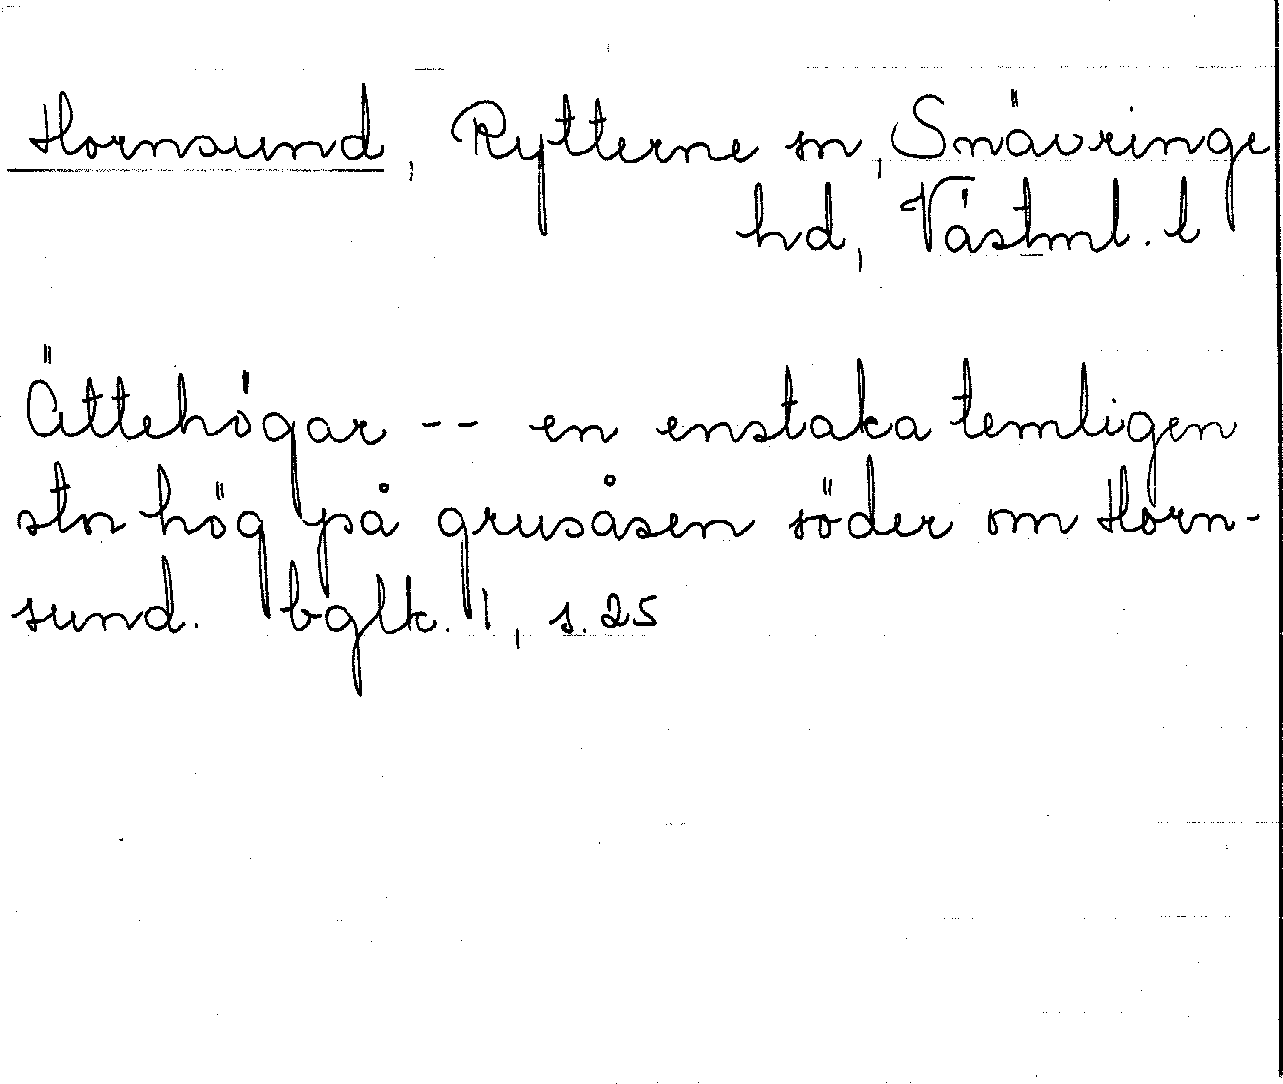 Hornsund, Rytterne sn, Snävringe
hd, Västml. l
Ättehögar -- en enstaka temligen
stor hög på grusåsen söder om Horn-
sund. bglk. 1, s. 25